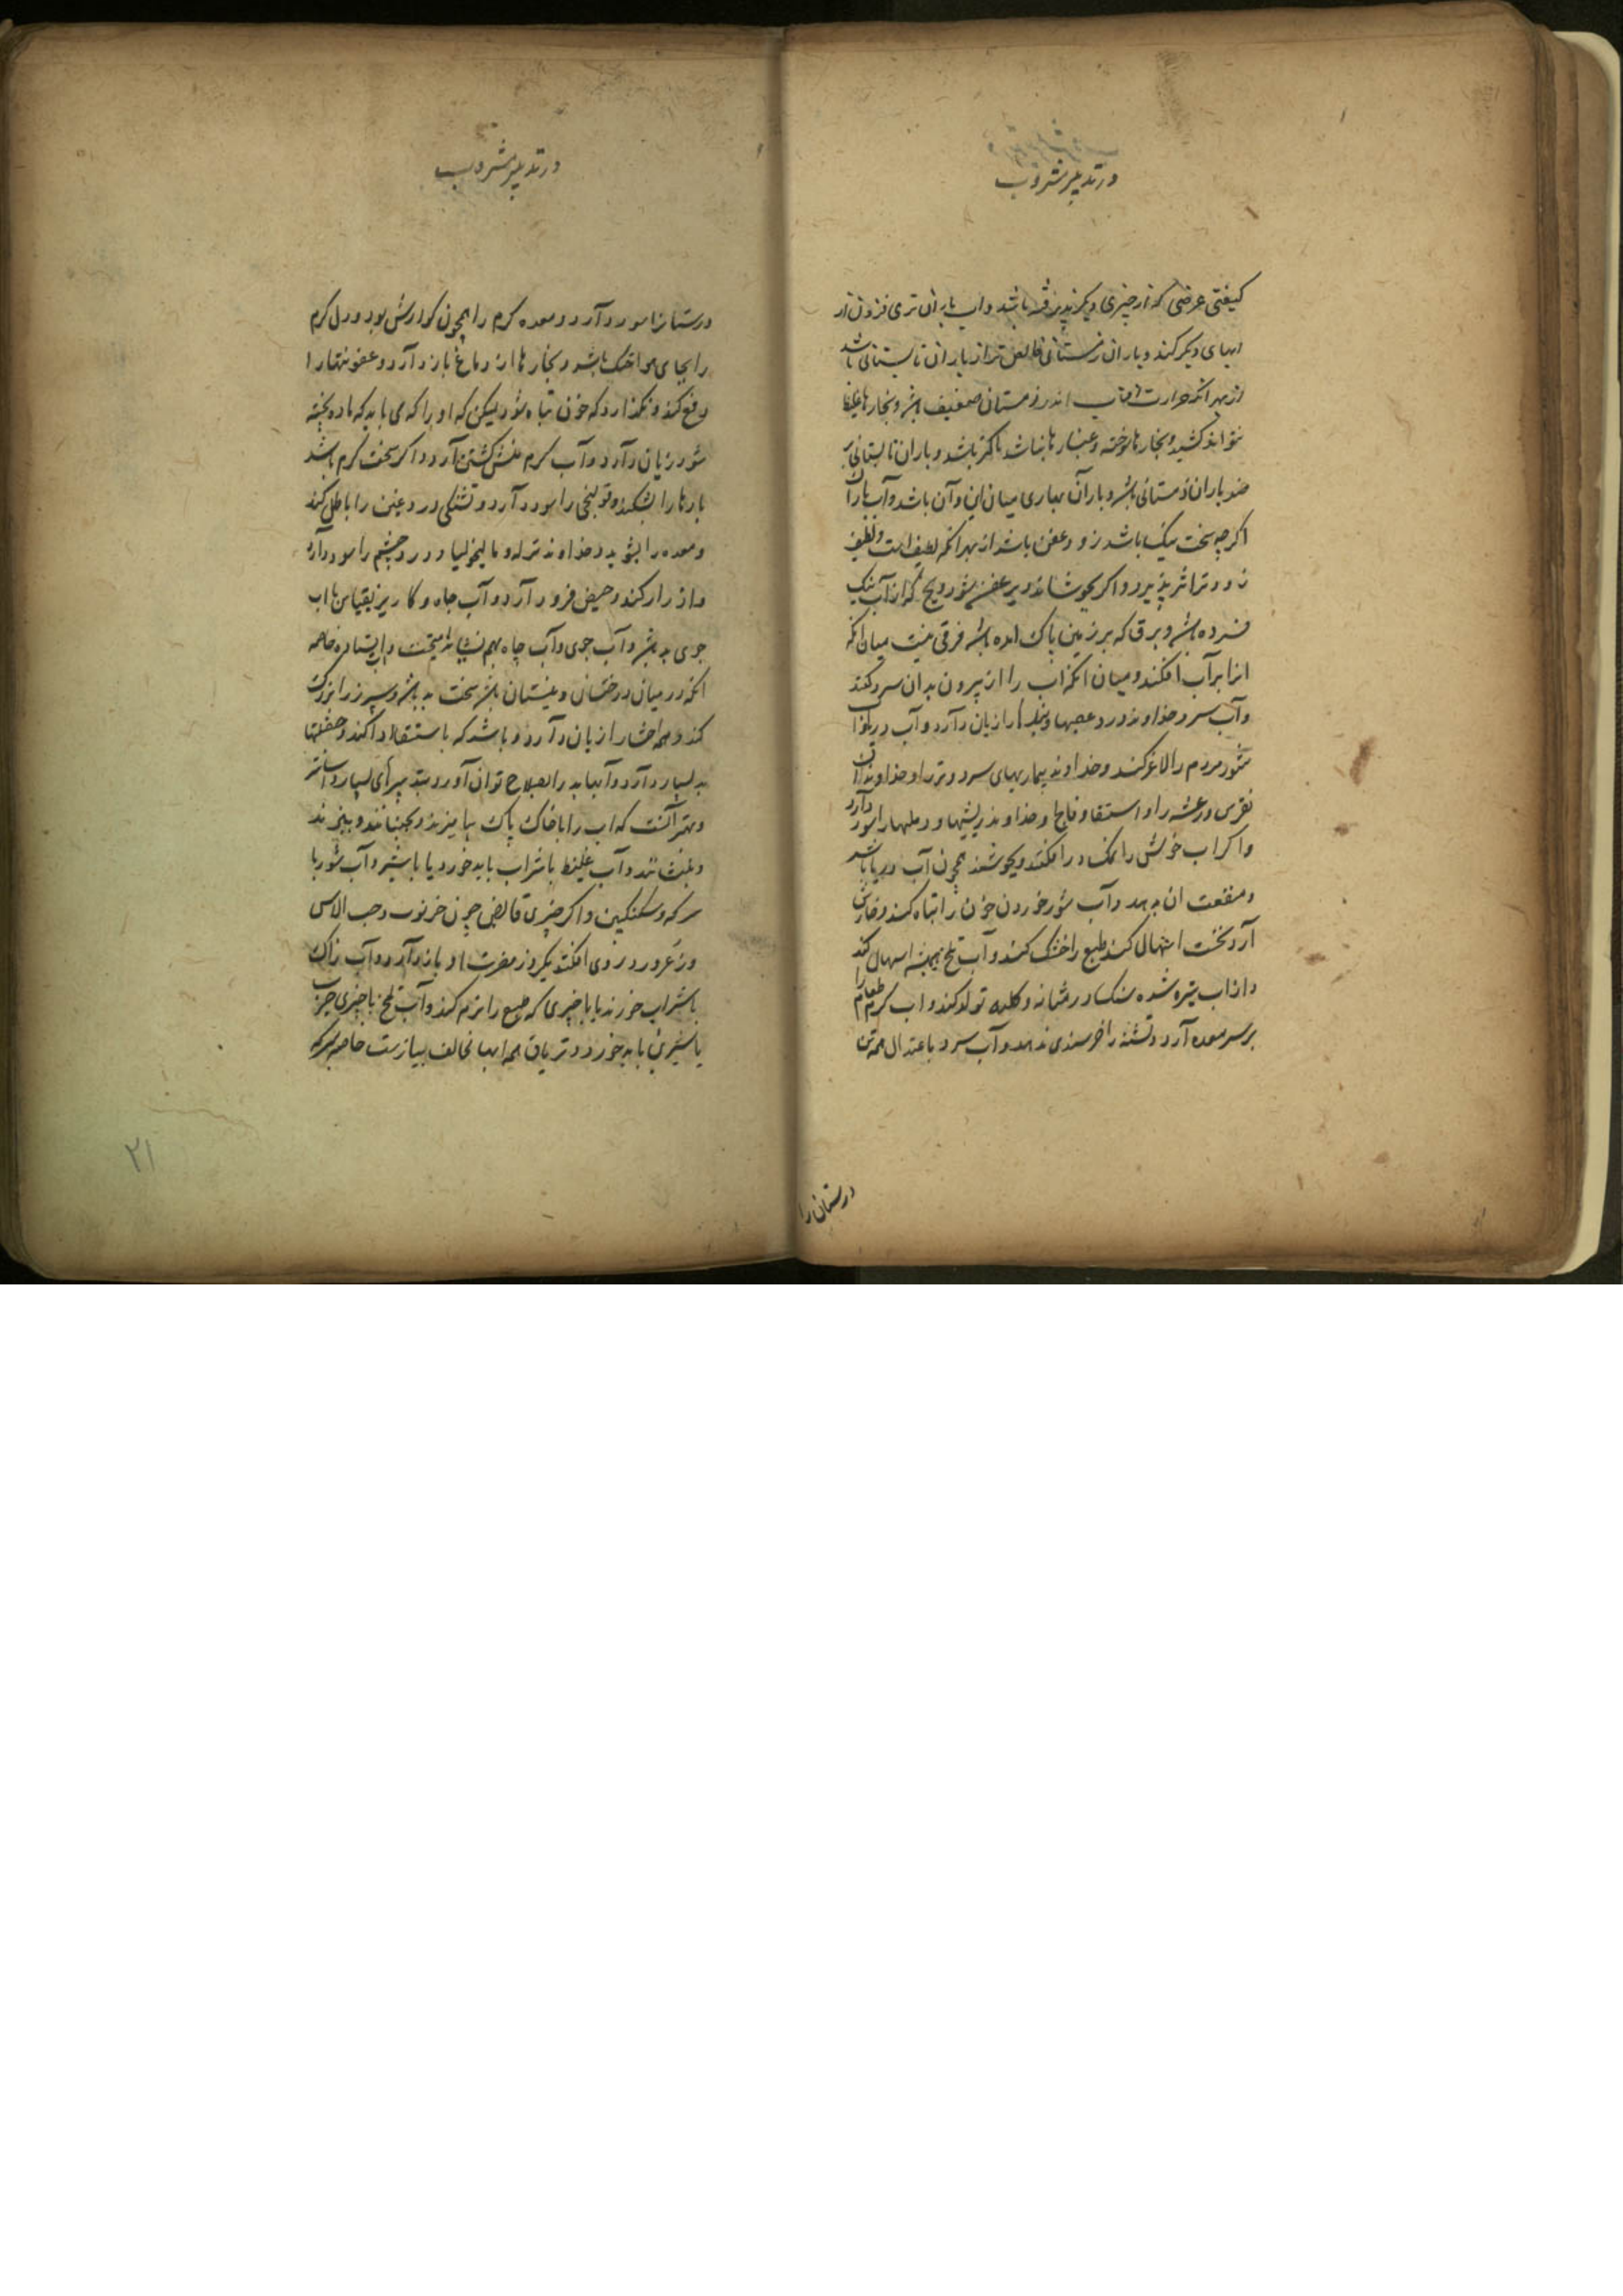 در تدبیر مشروب
کیفیتی عرضی که از چیزی دیگر پذیرفته باشد و آب باران تری فزون تر از
آبهای دیگر کند و باران زمستانی خالص تر از باران تابستانی باشد
از بهر آنکه حرارت آفتاب اندر زمستان ضعیف باشد و بخارها غلیظ
نتواند کشید و بخارها سوخته و غبارها نباشد پاکتر باشد و باران تابستانی بر
ضد باران زمستانی باشد و باران بهاری میان این و آن باشد و آب باران
اگرچه سخت نیک باشد زود عفن باشد از بهر آنکه لطیف است و لطیف
زودتر اثر پذیرد و اگر بجوشانند دیر عفن شود و یخ که از آب نیک
فسرده باشد و برف که بر زمین پاک آمده باشد فرقی نیست میان آنکه
آنرا بر آب افکنند و میان آنکه آب را از بیرون بدان سرد کنند
و آب سرد خداوند درد عصبها و را زیان دارد و آب دریا و آب
شور مردم را لاغر کند و خداوند بیماریهای سرد و تر را و خداوندان
نقرس و رعشه را و استسقا و فالج و خداوند ریشها و دملها را سود دارد
و اگر آب خوش را نمک در افکنند و بجوشند همچون آب دریا باشد
و منفعت آن بدهد و آب شور خوردن خون را تباه کند و خارش
آرد نخست اسهال کند طبع را خشک کند و آب تلخ همیشه اسهال کند
و از آب تیره شده سنک در مثانه و کلیه تولد کند و آب گرم طعام را
بر سر معده آرد و تشنه را خرسندی ندهد و آب سرد باعتدال همه تن
درستان را
در تدبیر مشروب
درستانرا سود دارد و معده گرم را همچون گوارش بود و دل گرم
را بجای هوا خنک باشد و بخارها از دماغ باز دارد و عفونتها را
دفع کند و نگذارد که خون تباه شود لیکن که او را که می باید که ماده پخته
شود زیان دارد و آب گرم منش گشتن آرد و اگر سخت گرم باشد
بادها را بشکند و قولنجی را سود دارد و تشنگی دروغین را باطل کند
و معده را بشوید و خداوند نزله و مالیخولیا و درد چشم را سود دارد
و ادرار کند و حیض فرود آرد و آب چاه و کاریز بقیاس با آب
جوی بد باشد و آب جوی و آب چاه بهم نشاید آمیخت و آب ایستاده خاصه
آنکه در میان درختان و نیستان باشد سخت بد باشد و سپرز را بزرگ
کند و همه احشا را زیان دارد و باشد که باستسقا ادا کند و
بد بسیار دارد و آبهاء بد را بعلاج توان آورد
و بهتر آنست که آب را با خاک پاک بیامیزند و بجنبانند و
و آب غلیظ با شراب باید خورد یا با شیر و آب شور با
سرکه و سکنکبین و اگر چیزی قابض چون خرنوب و حب الاس
و زعرور در وی افکنند یکروز مضرت او باز دارد و آب زاک
با شراب خورند یا با چیزی که طبع را نرم کند و آب تلخ با چیزی چرب
یا شیرین باید خورد و تریاق همه آبها مخالف پیازست خاصه بسرکه
۲۱